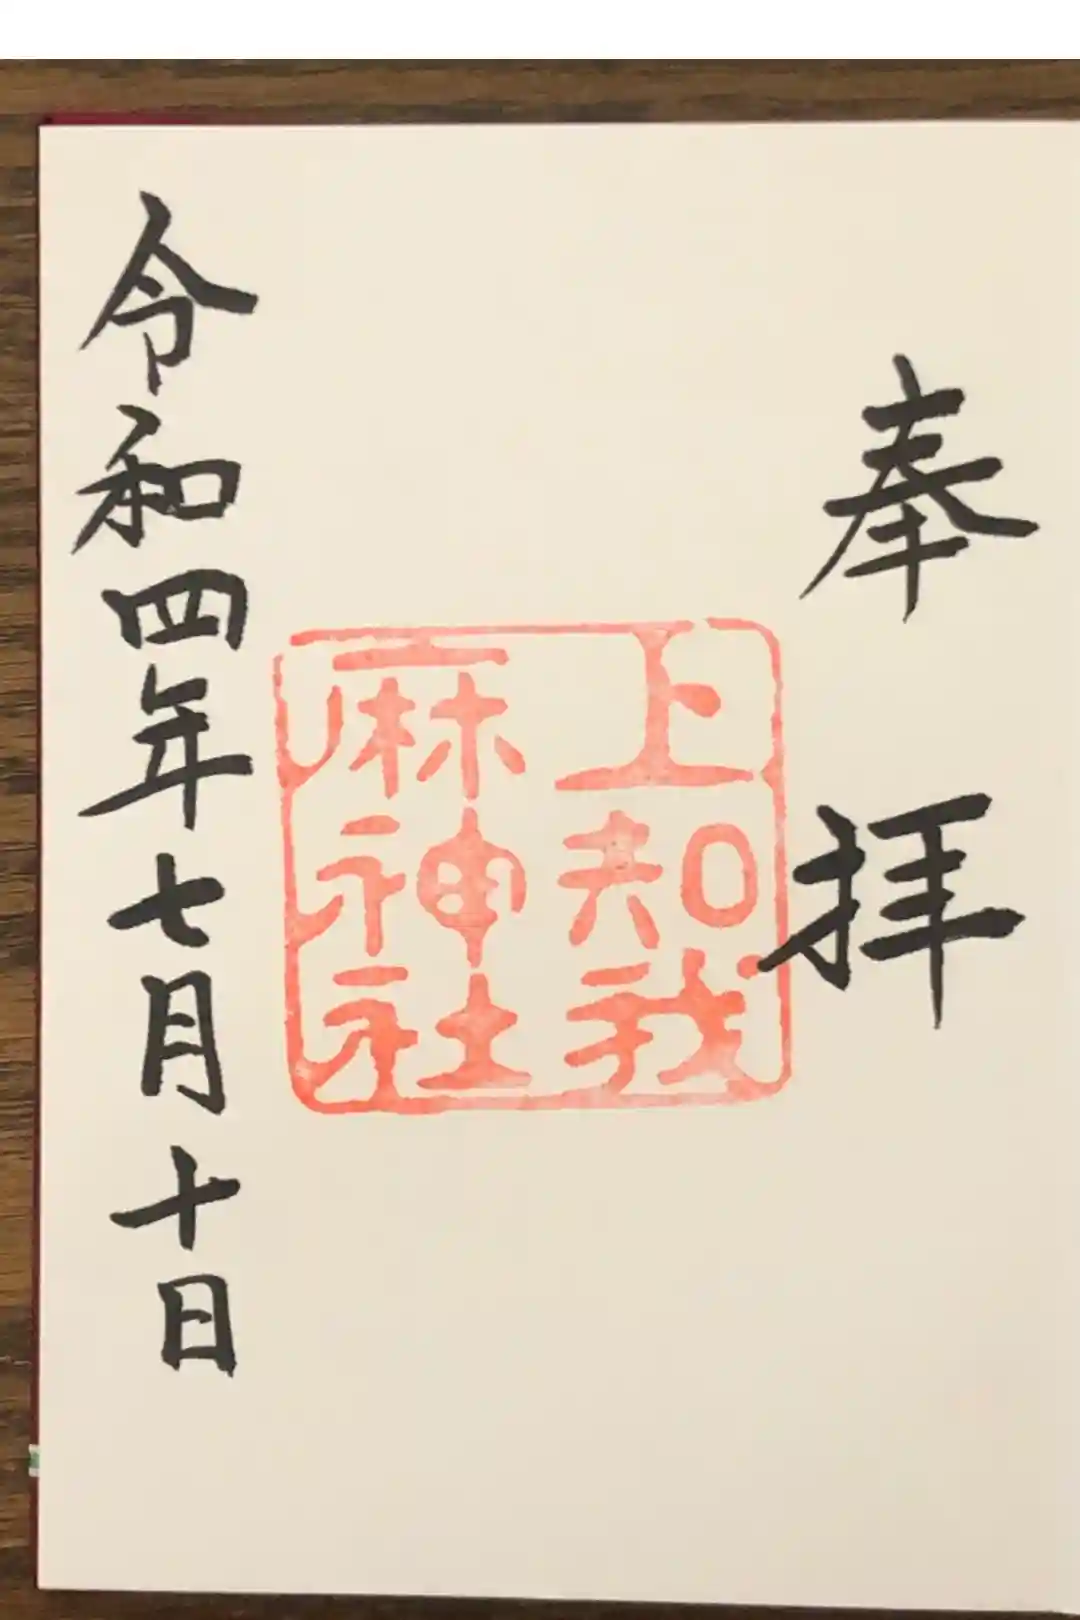 奉拝
上知我
麻神社
令和四年七月十日